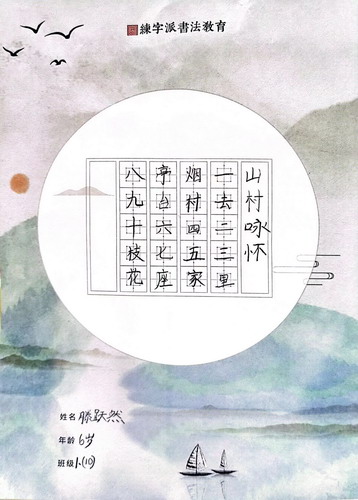 練字派書法教育
山村咏怀
一去二三里
烟村四五家
亭台六七座
八九十枝花
姓名 滕跃然
年龄 6岁
班级 1.(10)